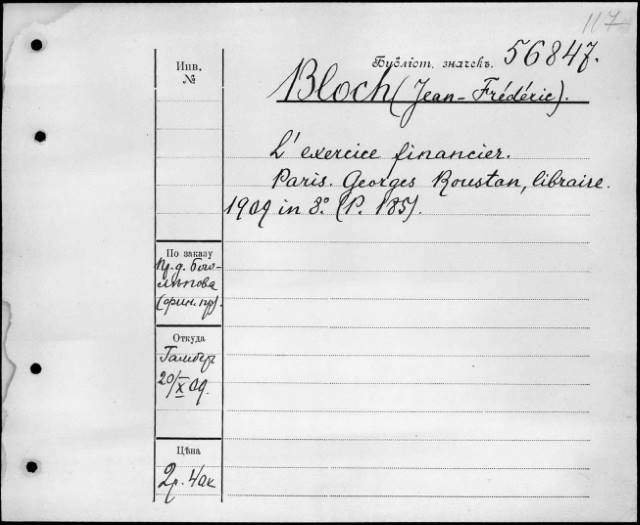 117
Инв.
№
Бубліот. значекъ. 56847.
Bloch (Jean-Frédéric).
L'exercice financier.
Paris. Georges Roustan, libraire.
1909 in 8° (P. 185).
По заказу
пр. д. Бого-
лѣпова
(фин. пр).
Откуда
20/X 09.
Цѣна
2р. 40к